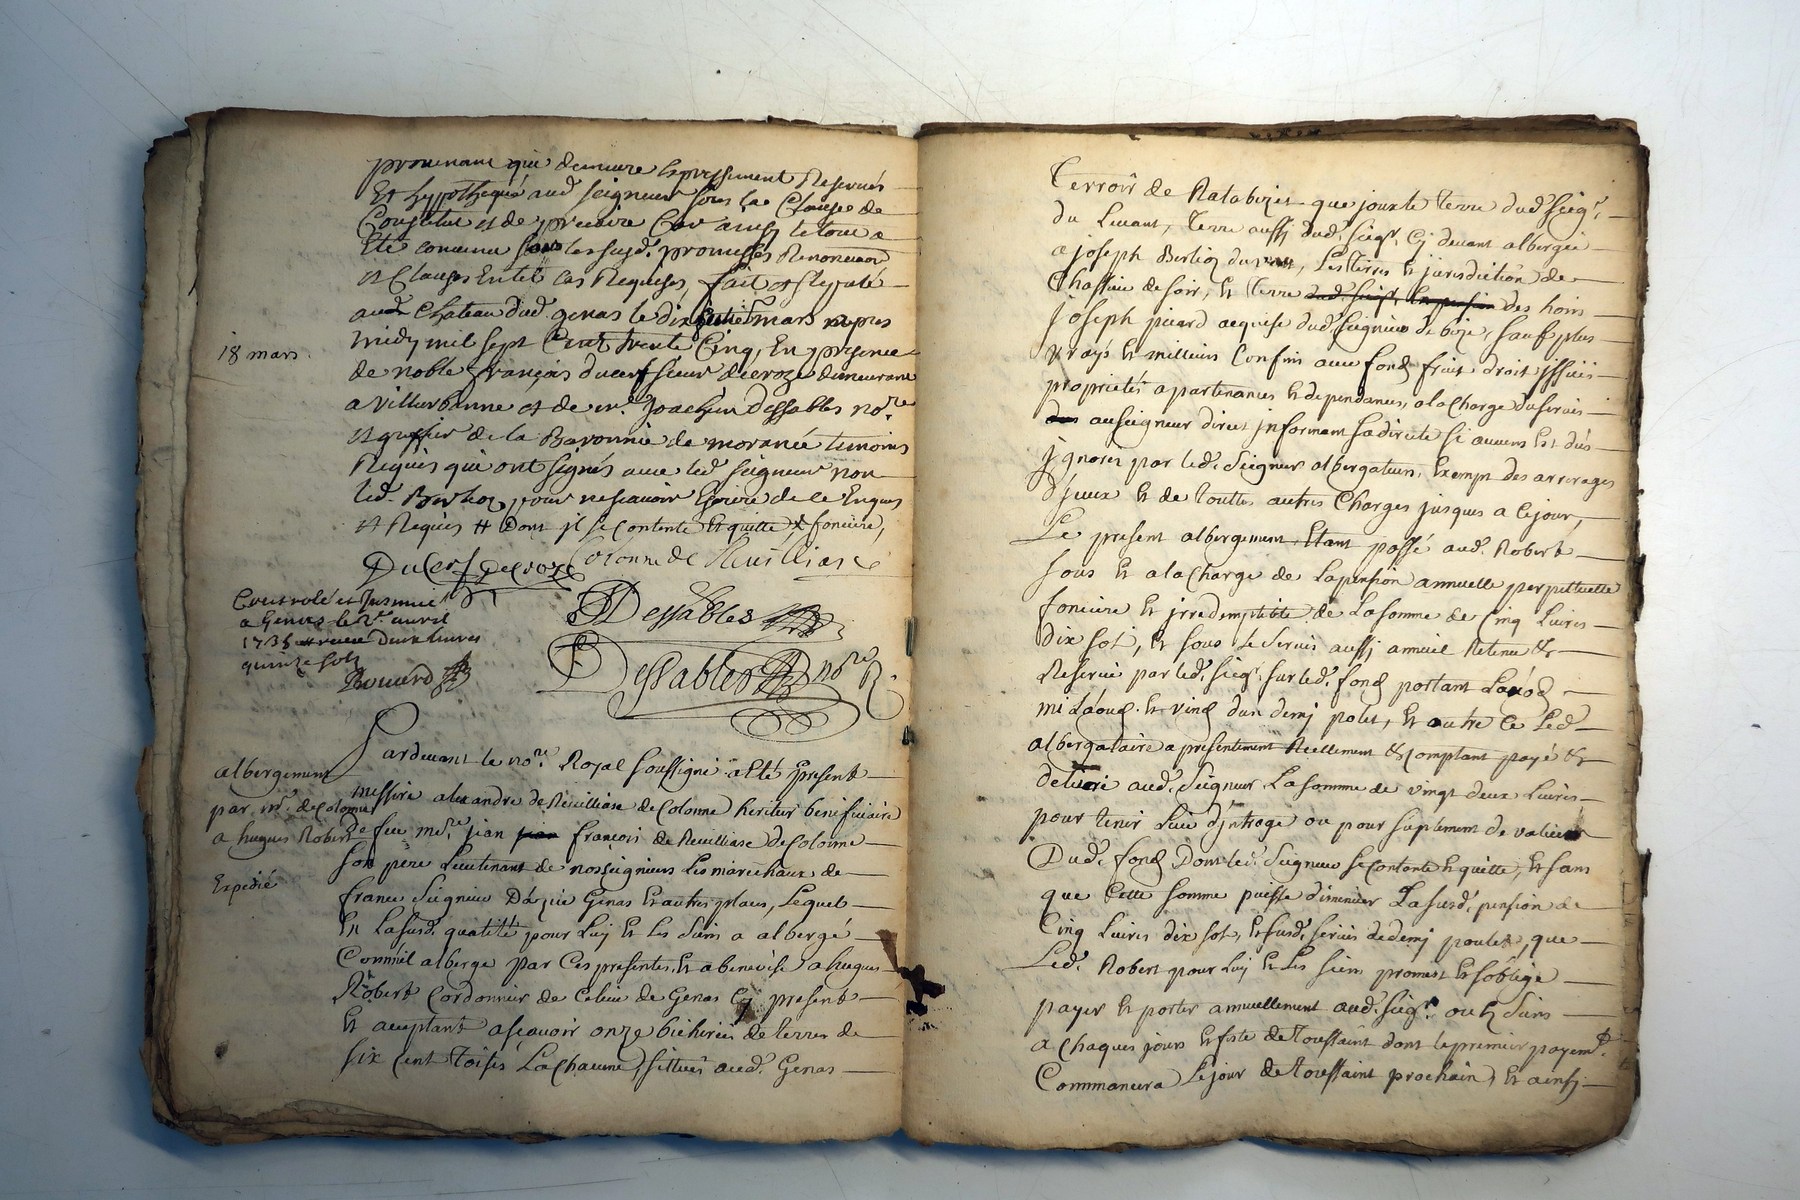 provenant qui demeure Expressement Reservés
Et hypothequé aud. seigneur sous la Clause de
Constitut et de precaire Car ainsy le tout a
Eté convenu sous les susd. promesses Renonciaon
et Clauses En tel cas Requises, fait et stipulé
aud. Chateau dud. genas le dix huitie mars apres
midy mil sept Cent trente Cinq, En presence
18 mars.
de noble François ducerf sieur decroze demeurant
a villeurbanne et de mr. Joachin Dessables nore.
et greffier de la Baronnie de morancé temoins
Requis qui ont signés avec led. seigneur non
led. Berlioz pour ne scavoir Ecrire de ce Enquis
et Requis # Dont jl se contente Et quitte, # fonciere,
Ducerf Decroze Colonne de Revilliasc
Controlé et Insinué
a Genas le 2e. avril
1735 # receu Deux livres
quinze sols
Dessables
Dessables nore R.
Pardevant le nore. Royal soussigné a eté present
albergement
messire alexandre de Revilliasc de Colonne heritier beneficiaire
par mr. de Colonne
de feu mere. jean jean françois de Revilliasc de Colonne
a hugues Robert
son pere Lieutenant de nosseigneurs Les marechaux de
Expedié
france Seigneur D'azieu Genas Et autres places, Lequel
En La susd. qualité pour Luy Et Les Siens a albergé
Comme il alberge par Ces presentes, Et abenevise a hugues
Robert Cordonnier de Celieu de Genas Cy present
Et acceptant ascavoir onze bicherées de terres de
six cent toises La chacune, sittuée aud. Genas
Terroir de Ratabizet que jouxte terre dud. Seigr.
du Levant, terre aussy dud. seigr. Cy devant albergée
a joseph Berlioz du vent, Les terres Et jurisdiction de
Chassieu de soir, Et terre dud. seigr. des hoirs
joseph picard acquise dud. Seigneur de bize, sauf plus
vrays Et meilleurs Confins avec fond fruit droit jssües
proprietés apartenances Et dependances, a la Charge du servis
au seigneur direct jnformant sa directe si aucuns Est dus
jgnorés par led. Seigneur albergateur, Exempt des arrerages
d'jceux Et de Touttes autres Charges jusques a Cejour,
Le present albergement Etant passé aud. Robert
sous Et a la Charge de La pension annuelle perpettuelle
fonciere Et jrredemptible de La somme de Cinq Livres
Dix sol, Et sous le servis aussy annuel Retenu Et
Reservé par led. seigr. sur led. fond portant Laod
mi Laoud. Et vend d'un demy polet, Et outre Ce Led.
albergataire a presentement Reellement Et Comptant payé Et
delivré aud. Seigneur La somme de vingt deux Livres
pour tenir Lieu d'jntroge ou pour suplement de valeur
Dud. fond Dont led. Seigneur se Contente Et quitte, Et sans
que Cette somme puisse diminuer La susd. pension de
Cinq Livres dix sol, Et susd. servis de demy poulet, que
Led. Robert pour Luy Et Les siens promet Et s'oblige
payer Et porter annuellement aud. Seigr. ou Es Siens
a chaques jours Et feste de Toussaint dont le premier payemt.
Commancera Le jour de toussaint prochain, Et ainsy